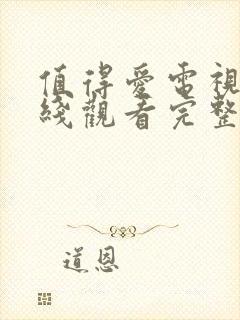 值得愛電視
綫觀看完整
道恩